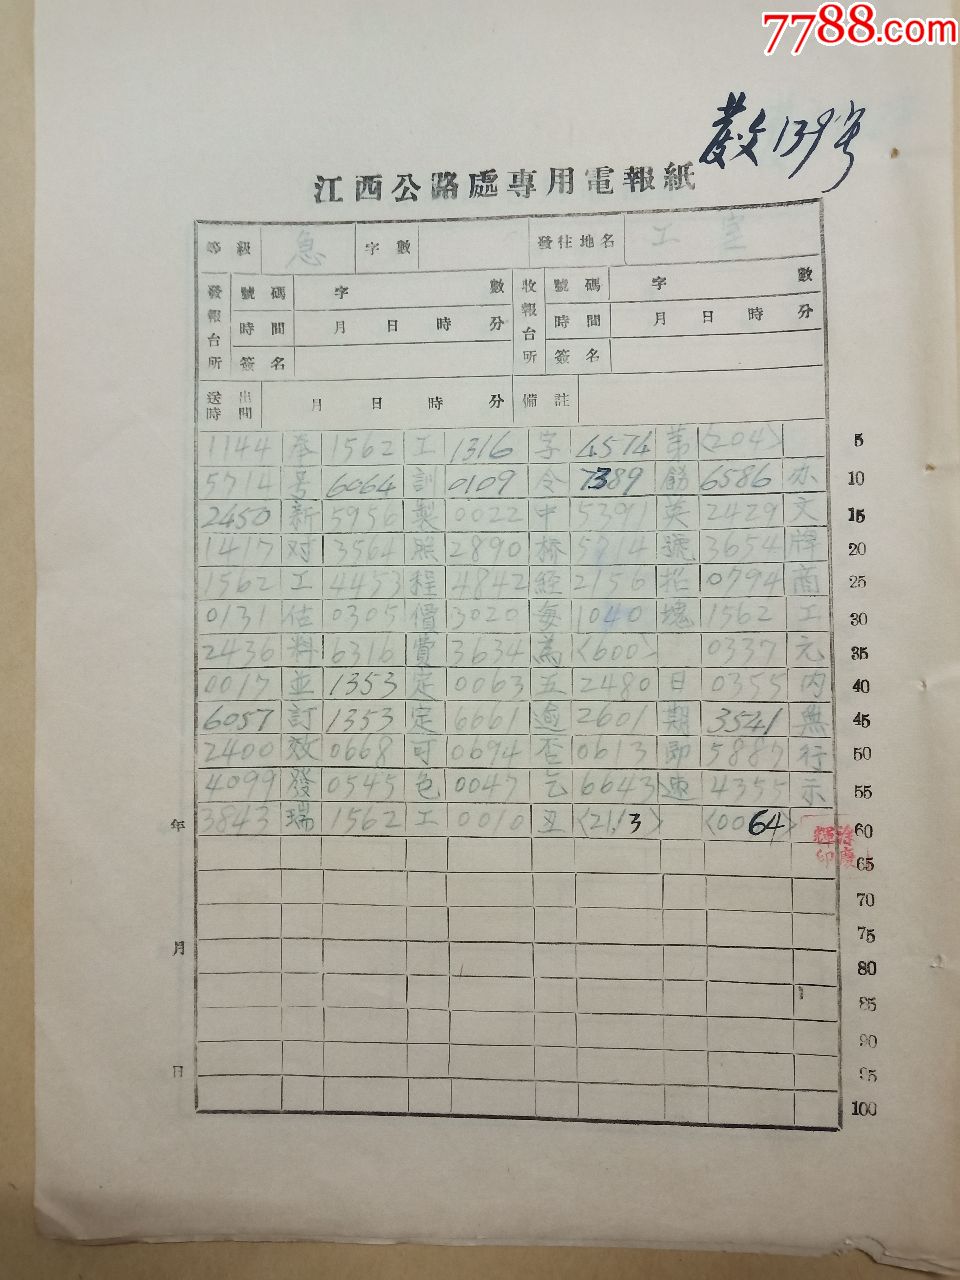 7788.com
发文139号
江西公路處專用電報紙
等級 急 字數 發往地名 工室
發報台所 號碼 字數 收報台所 號碼 字數
時間 月日時分 時間 月日時分
簽名 簽名
送出時間 月日時分 備註
1144 奉 1562 工 1316 字 4574 第 <204> 5
5714 号 6064 訓 0109 令 7389 飭 6586 办 10
2450 新 5956 製 0022 中 5391 英 2429 文 15
1417 对 3564 照 2890 桥 5714 號 3654 牌 20
1562 工 4453 程 4842 經 2156 招 0794 商 25
0131 估 0305 價 3020 每 1040 塊 1562 工 30
2436 料 6316 費 3634 萬 <600> 0337 元 35
0017 並 1353 定 0063 五 2480 日 0355 内 40
6057 訂 1353 定 6661 逾 2601 期 3541 無 45
2400 效 0668 可 0694 否 0613 即 5887 行 50
4099 發 0545 包 0047 乞 6643 速 4355 示 55
3843 瑞 1562 工 0010 丑 <2113> <0064> 60
涂慶輝印
65
70
75
80
85
90
95
100
年
月
日